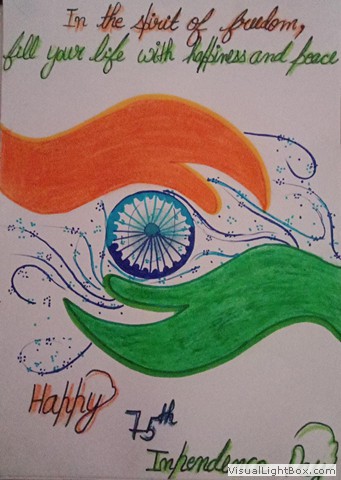 In the spirit of freedom,
fill your life with happiness and peace
Happy
75th
Inpendence Day
VisualLightBox.com